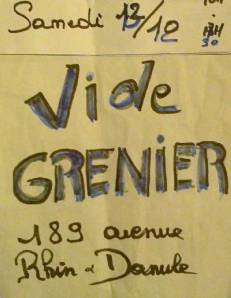 Samedi 13/12
13H
30
Vide
GRENIER
189 avenue
Rhin & Danule